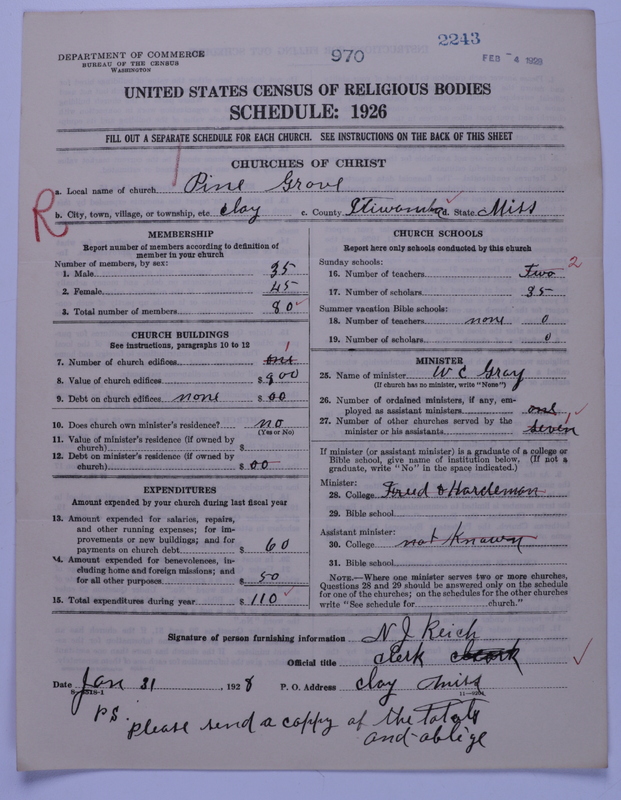 2243
970
FEB - 4 1928
DEPARTMENT OF COMMERCE
BUREAU OF THE CENSUS
WASHINGTON
UNITED STATES CENSUS OF RELIGIOUS BODIES
SCHEDULE: 1926
FILL OUT A SEPARATE SCHEDULE FOR EACH CHURCH. SEE INSTRUCTIONS ON THE BACK OF THIS SHEET
CHURCHES OF CHRIST
a. Local name of church Pine Grove
R
b. City, town, village, or township, etc Clay c. County Itiwamba d. State Miss
MEMBERSHIP
Report number of members according to definition of
member in your church
Number of members, by sex:
1. Male 35
2. Female 45
3. Total number of members 80
CHURCH BUILDINGS
See instructions, paragraphs 10 to 12
7. Number of church edifices one 1
8. Value of church edifices $ 900
9. Debt on church edifices none $ 00
10. Does church own minister's residence? no
(Yes or No)
11. Value of minister's residence (if owned by
church) $
12. Debt on minister's residence (if owned by
church) $ 00
EXPENDITURES
Amount expended by your church during last fiscal year
13. Amount expended for salaries, repairs,
and other running expenses; for im-
provements or new buildings; and for
payments on church debt $ 60
14. Amount expended for benevolences, in-
cluding home and foreign missions; and
for all other purposes $ 50
15. Total expenditures during year $ 110
CHURCH SCHOOLS
Report here only schools conducted by this church
Sunday schools:
16. Number of teachers Two 2
17. Number of scholars 35
Summer vacation Bible schools:
18. Number of teachers none 0
19. Number of scholars 0
MINISTER
25. Name of minister W C Gray
(If church has no minister, write "None")
26. Number of ordained ministers, if any, em-
ployed as assistant ministers one
27. Number of other churches served by the
minister or his assistants seven
If minister (or assistant minister) is a graduate of a college or
Bible school, give name of institution below. (If not a
graduate, write "No" in the space indicated.)
Minister:
28. College Freed & Hardeman
29. Bible school
Assistant minister:
30. College not known
31. Bible school
NOTE.—Where one minister serves two or more churches,
Questions 28 and 29 should be answered only on the schedule
for one of the churches; on the schedules for the other churches
write "See schedule for church."
Signature of person furnishing information N J Reich
Official title Clerk
Date Jan 31, 1928 P. O. Address Clay Miss
PS. Please send a coppy of the Totals
and oblige